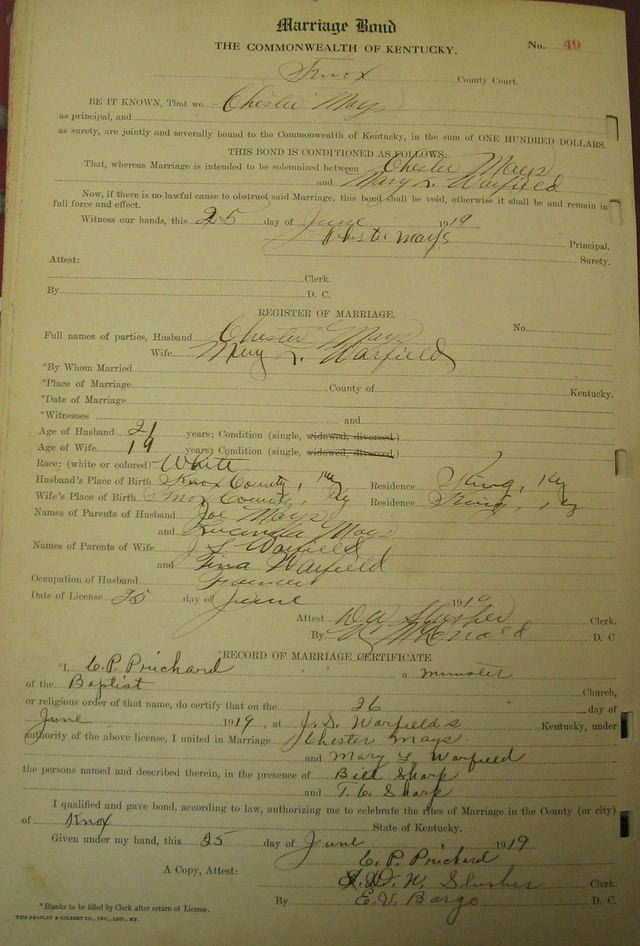 Marriage Bond
THE COMMONWEALTH OF KENTUCKY.
No. 49
Knox County Court.
BE IT KNOWN, That we Chester Mays
as principal, and
as surety, are jointly and severally bound to the Commonwealth of Kentucky, in the sum of ONE HUNDRED DOLLARS.
THIS BOND IS CONDITIONED AS FOLLOWS:
That, whereas Marriage is intended to be solemnized between Chester Mays
and Mary L. Warfield
Now, if there is no lawful cause to obstruct said Marriage, this bond shall be void, otherwise it shall be and remain in
full force and effect.
Witness our hands, this 25 day of June 1919
Chester Mays Principal.
Attest: Surety.
Clerk.
By D. C.
REGISTER OF MARRIAGE.
No.
Full names of parties, Husband Chester Mays
Wife Mary L. Warfield
*By Whom Married
*Place of Marriage County of Kentucky.
*Date of Marriage
*Witnesses and
Age of Husband 21 years; Condition (single, widowed, divorced.)
Age of Wife 19 years; Condition (single, widowed, divorced.)
Race: (white or colored) White
Husband's Place of Birth Knox County, Ky Residence King, Ky
Wife's Place of Birth Knox County, Ky Residence King, Ky
Names of Parents of Husband Joe Mays
and Lucinda Mays
Names of Parents of Wife J. S. Warfield
and Tina Warfield
Occupation of Husband Farmer
Date of License 25 day of June 1919
Attest Clerk.
By D. C
RECORD OF MARRIAGE CERTIFICATE
*I, C. P. Prichard a minister
of the Baptist Church,
or religious order of that name, do certify that on the 26 day of
June 1919, at J. S. Warfield's Kentucky, under
authority of the above license, I united in Marriage Chester Mays
and Mary L. Warfield
the persons named and described therein, in the presence of Bill Sharp
and T. C. Sharp
I qualified and gave bond, according to law, authorizing me to celebrate the rites of Marriage in the County (or city)
of Knox State of Kentucky.
Given under my hand, this 25 day of June 1919
C. P. Prichard
A Copy, Attest: W. Slusher Clerk.
By E. V. Bargo D. C
*Blanks to be filled by Clerk after return of License.
THE BRADLEY & GILBERT CO., INC., LOU., KY.